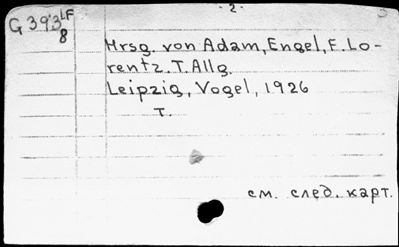 - 2 -
G 393 LF
8
Hrsg. von Adam, Engel, F. Lo-
rentz. T. Allg.
Leipzig, Vogel, 1926
T.
см. след. карт.